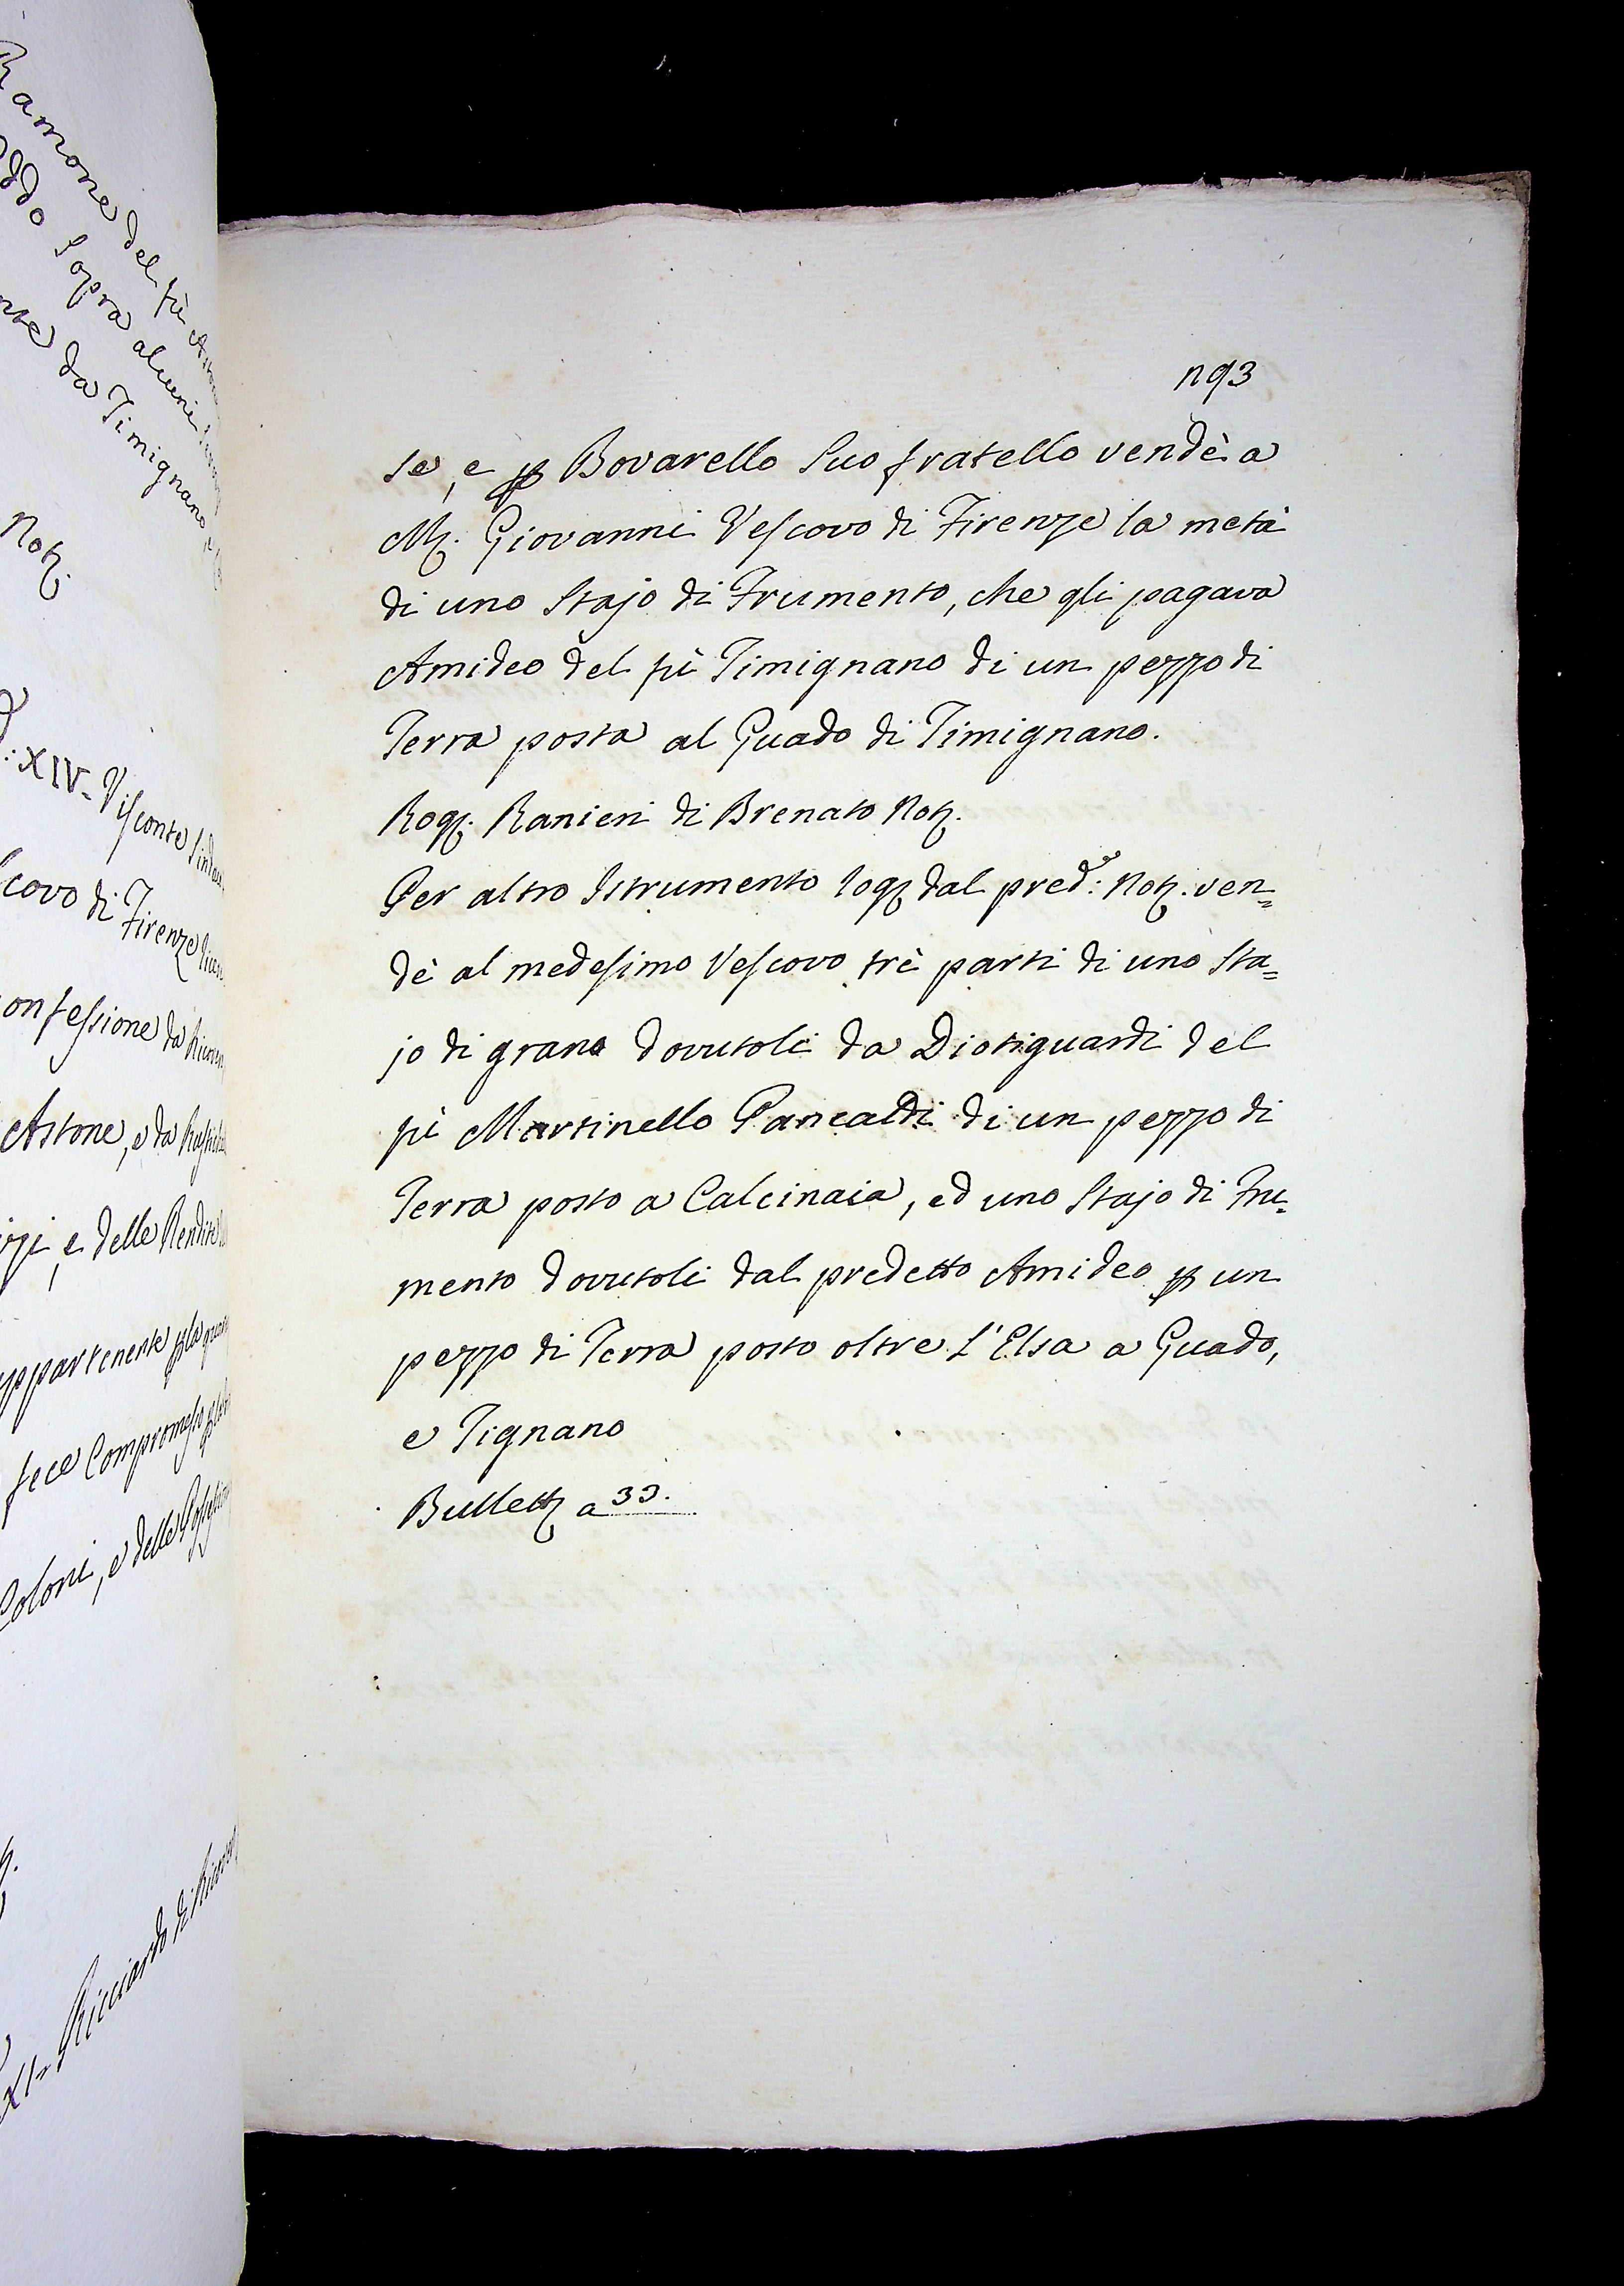 Ramone del fù
oddo Sopra alcuni
nte da Timignano
Notẓ.
: XIV. Visconte
scovo di Firenze
onfessione da
Astone, e da
e delle Rendite
appartenente p la
fece Compromesso
Coloni, e delle
XI. Ricciardo di
n93
se, e p Bovarello Suo fratello vendè a
Mẓ. Giovanni Vescovo di Firenze la metà
di uno Stajo di Frumento, che gli pagava
Amideo del fù Timignano di un pezzo di
Terra posta al Guado di Timignano.
Rogẓ. Ranieri di Brenato Notẓ.
Per altro Istrumento rogẓ dal pred:º Notẓ. ven=
dè al medesimo Vescovo trè parti di uno Sta=
jo di grano dovutoli da Diotiguardi del
fù Martinello Pancaldi di un pezzo di
Terra posto a Calcinaia, ed uno Stajo di Fru=
mento dovutoli dal predetto Amideo p un
pezzo di Terra posto oltre l'Elsa a Guado,
e Tignano
Bullettẓ a 33.